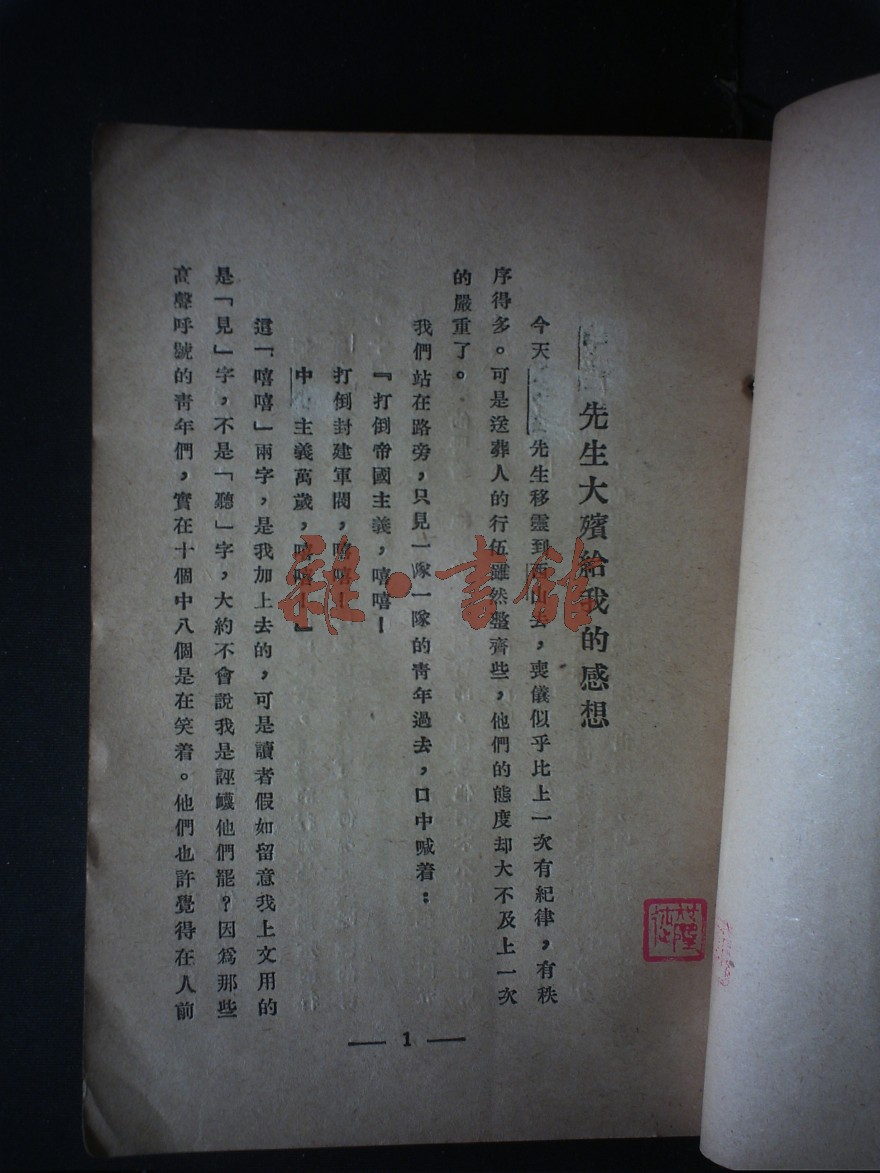 先生大殯給我的感想
今天先生移靈到西山去，喪儀似乎比上一次有紀律，有秩
序得多。可是送葬人的行伍雖然整齊些，他們的態度却大不及上一次
的嚴重了。
我們站在路旁，只見一隊一隊的靑年過去，口中喊着：
『打倒帝國主義，嘻嘻！
打倒封建軍閥，嘻嘻！
中主義萬歲，嘻嘻！』
這「嘻嘻」兩字，是我加上去的，可是讀者假如留意我上文用的
是「見」字，不是「聽」字，大約不會說我是誣衊他們罷？因爲那些
高聲呼號的靑年們，實在十個中八個是在笑着。他們也許覺得在人前
— 1 —
雜·書館